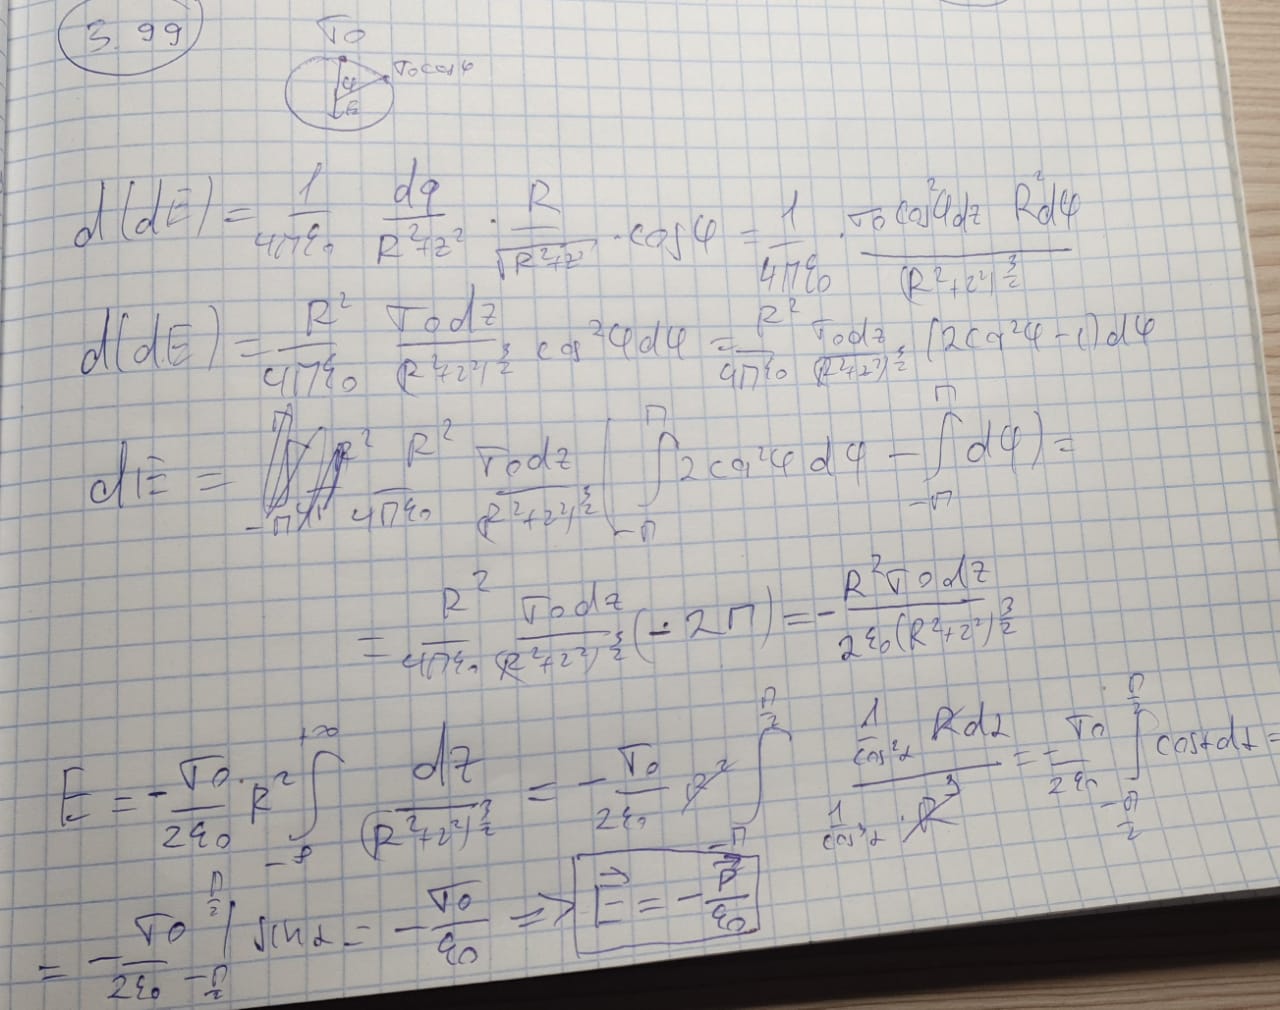 3.99
σ₀
σ₀cosφ
φ
E
d(dE) = 1/4πε₀ dq/(R²+z²) · R/√(R²+z²) · cosφ = 1/4πε₀ · σ₀cos²φdz R²dφ/(R²+z²)^(3/2)
d(dE) = R²/4πε₀ σ₀dz/(R²+z²)^(3/2) cos²φdφ = R²/4πε₀ σ₀dz/(R²+z²)^(3/2) (2cos²φ-1)dφ
dE = R²/4πε₀ σ₀dz/(R²+z²)^(3/2) (∫_{-π}^{π} 2cos²φdφ - ∫_{-π}^{π} dφ) =
= R²/4πε₀ σ₀dz/(R²+z²)^(3/2) (-2π) = - R²σ₀dz/2ε₀(R²+z²)^(3/2)
E = - σ₀/2ε₀ · R² ∫_{-∞}^{+∞} dz/(R²+z²)^(3/2) = - σ₀/2ε₀ R² ∫_{-π}^{π/2} (1/cos²α Rdα)/(1/cos³α · R³) = - σ₀/2ε₀ ∫_{-π/2}^{π/2} cosαdα =
= - σ₀/2ε₀ |_{-π/2}^{π/2} sinα = - σ₀/ε₀ => E⃗ = - P⃗/ε₀